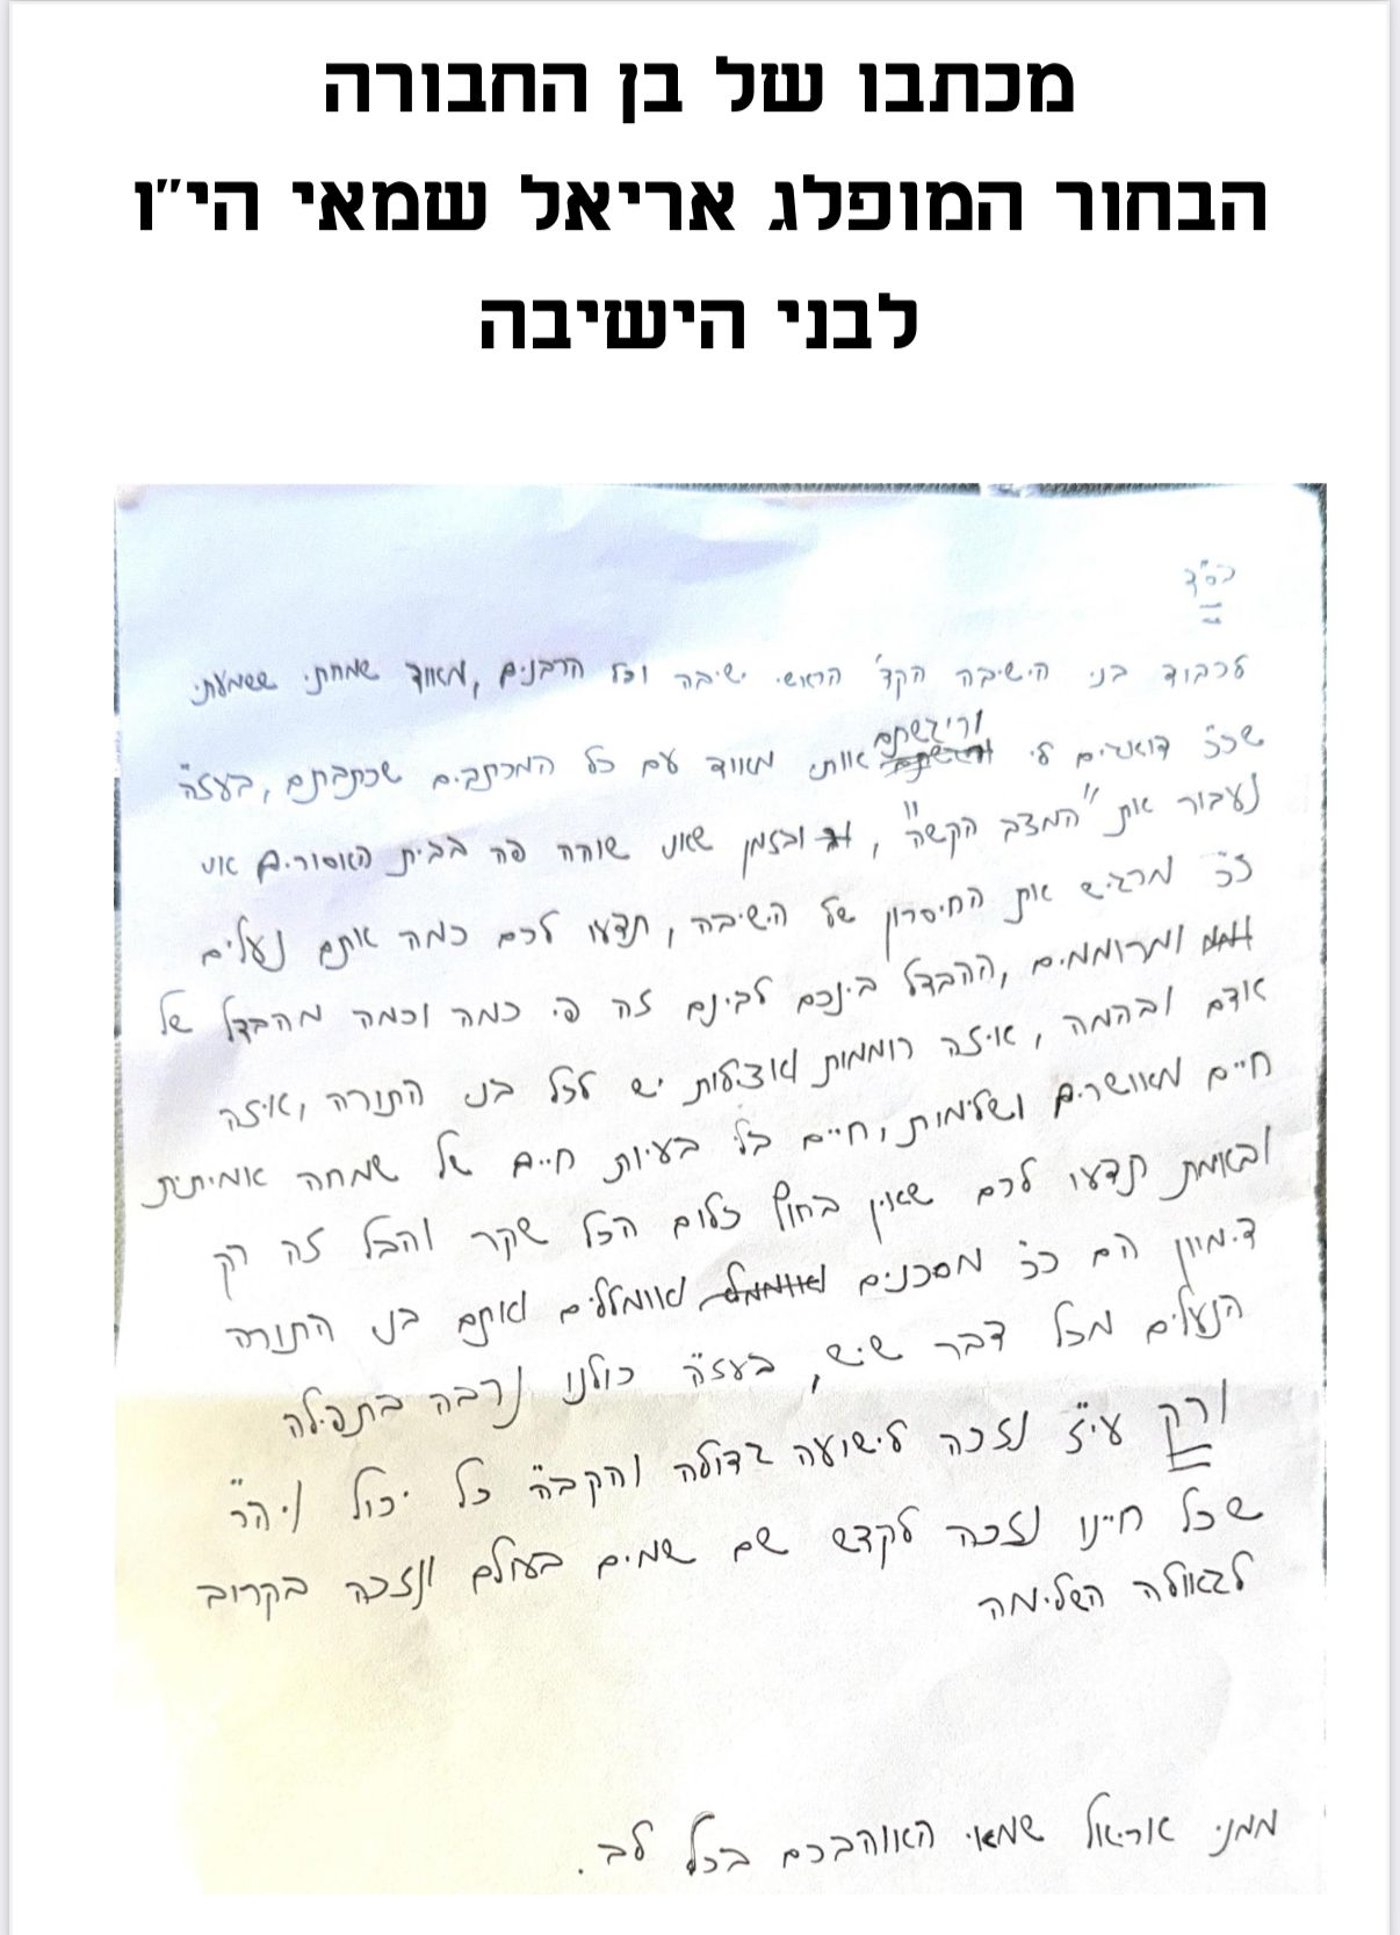 מכתבו של בן החבורה
הבחור המופלג אריאל שמאי הי״ו
לבני הישיבה
בס"ד
לכבוד בני הישיבה הקד' הראשי ישיבה וכל הרבנים, מאוד שמחתי ששמעתי
שכ"כ דואגים לי וריגשתם אותי מאוד עם כל המכתבים שכתבתם, בעז"ה
נעבור את "המצב הקשה", ובזמן שאני שוהה פה בבית האסורים אני
כ"כ מרגיש את החיסרון של הישיבה, תדעו לכם כמה אתם נעלים
ומרוממים, ההבדל בינכם לבינם זה פי כמה וכמה מהבדל של
אדם ובהמה, איזה רוממות ואצילות יש לכל בני התורה, איזה
חיים מאושרים ושלימות, חיים בלי בעיות חיים של שמחה אמיתית
ובאמת תדעו לכם שאין בחוץ כלום הכל שקר והבל זה רק
דימיון הם כ"כ מסכנים ואומללים ואתם בני התורה
הנעלים מכל דבר שיש, בעז"ה כולנו נרבה בתפילה
ורק עי"ז נזכה לישועה גדולה והקב"ה כל יכול ויה"ר
שכל חיינו נזכה לקדש שם שמים בעולם ונזכה בקרוב
לגאולה השלימה
ממני אריאל שמאי האוהבכם בכל לב.